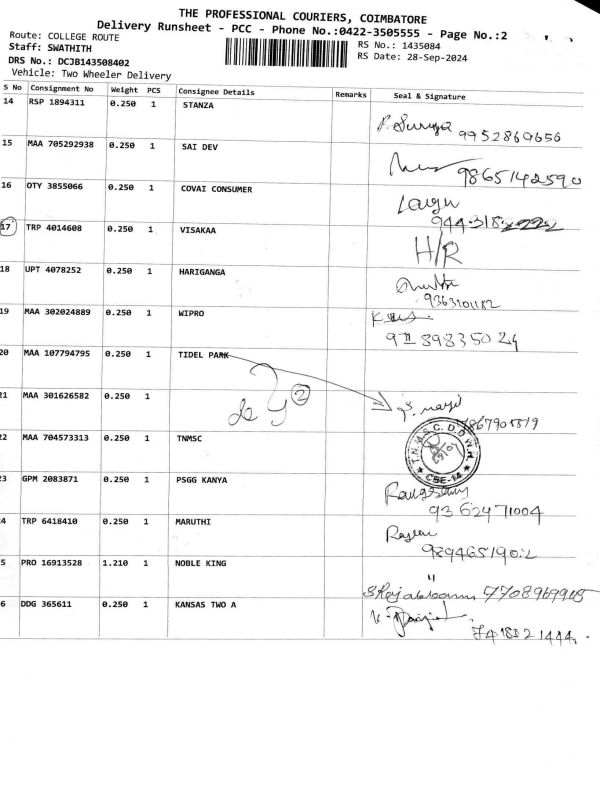 THE PROFESSIONAL COURIERS, COIMBATORE
Delivery Runsheet - PCC - Phone No.:0422-3505555 - Page No.:2
Route: COLLEGE ROUTE
Staff: SWATHITH
DRS No.: DCJB143508402
Vehicle: Two Wheeler Delivery
RS No.: 1435084
RS Date: 28-Sep-2024
S No Consignment No Weight PCS Consignee Details Remarks Seal & Signature
14 RSP 1894311 0.250 1 STANZA
P. Surya 9952869656
15 MAA 705292938 0.250 1 SAI DEV
9865142590
16 OTY 3855066 0.250 1 COVAI CONSUMER
17 TRP 4014608 0.250 1 VISAKAA
H/R
18 UPT 4078252 0.250 1 HARIGANGA
9363101182
19 WIPRO MAA 302024889 0.250 1
20 MAA 107794795 0.250 1 TIDEL PARK
21 MAA 301626582 0.250 1
2
22 MAA 704573313 0.250 1 TNMSC
T.N.M.S.C. D.D.W.H.
CBE-14
23 GPM 2083871 0.250 1 PSGG KANYA
9362471004
4 TRP 6418410 0.250 1 MARUTHI
9894651902
5 PRO 16913528 1.210 1 NOBLE KING
7708969905
6 DDG 365611 0.250 1 KANSAS TWO A
7418321444